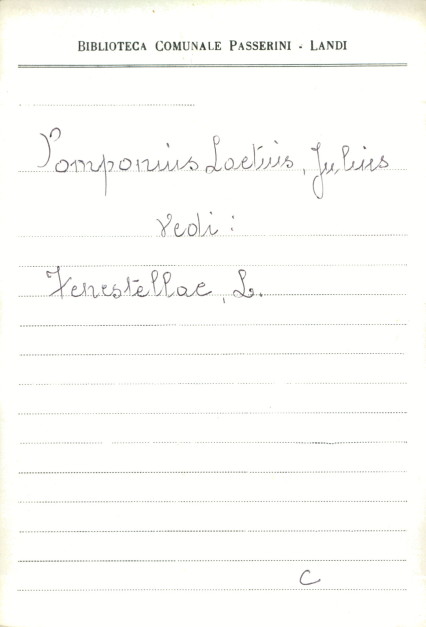 BIBLIOTECA COMUNALE PASSERINI - LANDI
Pomponius Laetus, Julius
vedi:
Fenestellae, L.
C